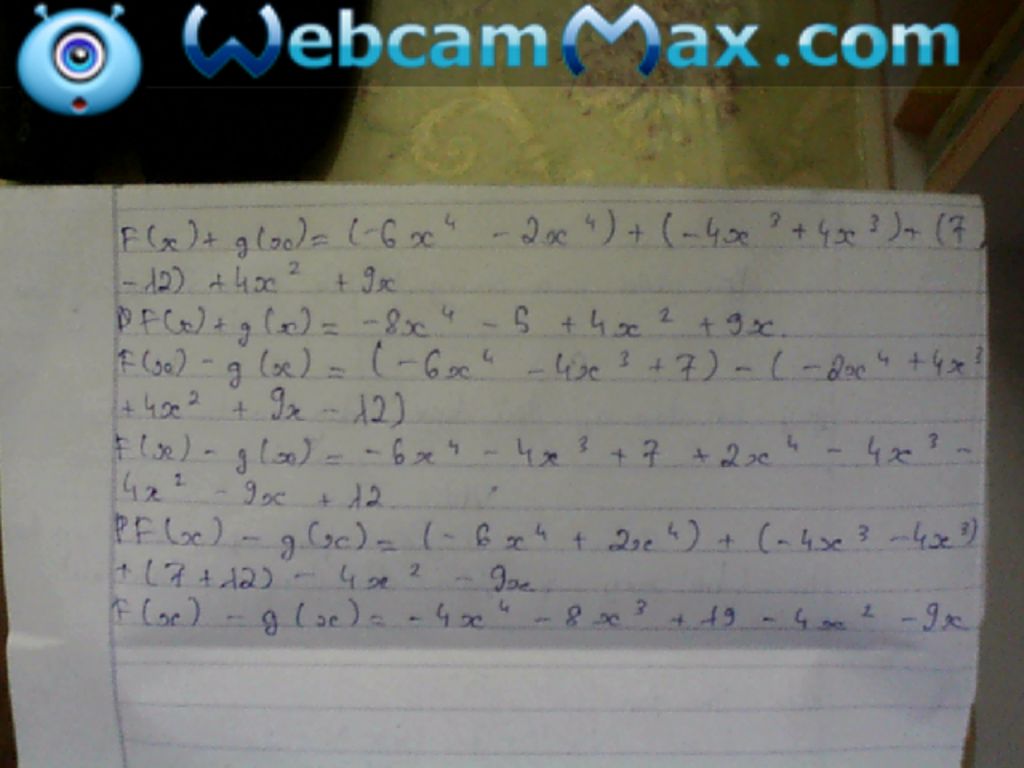 WebcamMax.com
F(x) + g(x) = (-6x⁴ - 2x⁴) + (-4x³ + 4x³) + (7
- 12) + 4x² + 9x
F(x) + g(x) = -8x⁴ - 5 + 4x² + 9x.
F(x) - g(x) = (-6x⁴ - 4x³ + 7) - (-2x⁴ + 4x³
+ 4x² + 9x - 12)
F(x) - g(x) = -6x⁴ - 4x³ + 7 + 2x⁴ - 4x³ -
4x² - 9x + 12.
F(x) - g(x) = (-6x⁴ + 2x⁴) + (-4x³ - 4x³)
+ (7 + 12) - 4x² - 9x.
F(x) - g(x) = -4x⁴ - 8x³ + 19 - 4x² - 9x